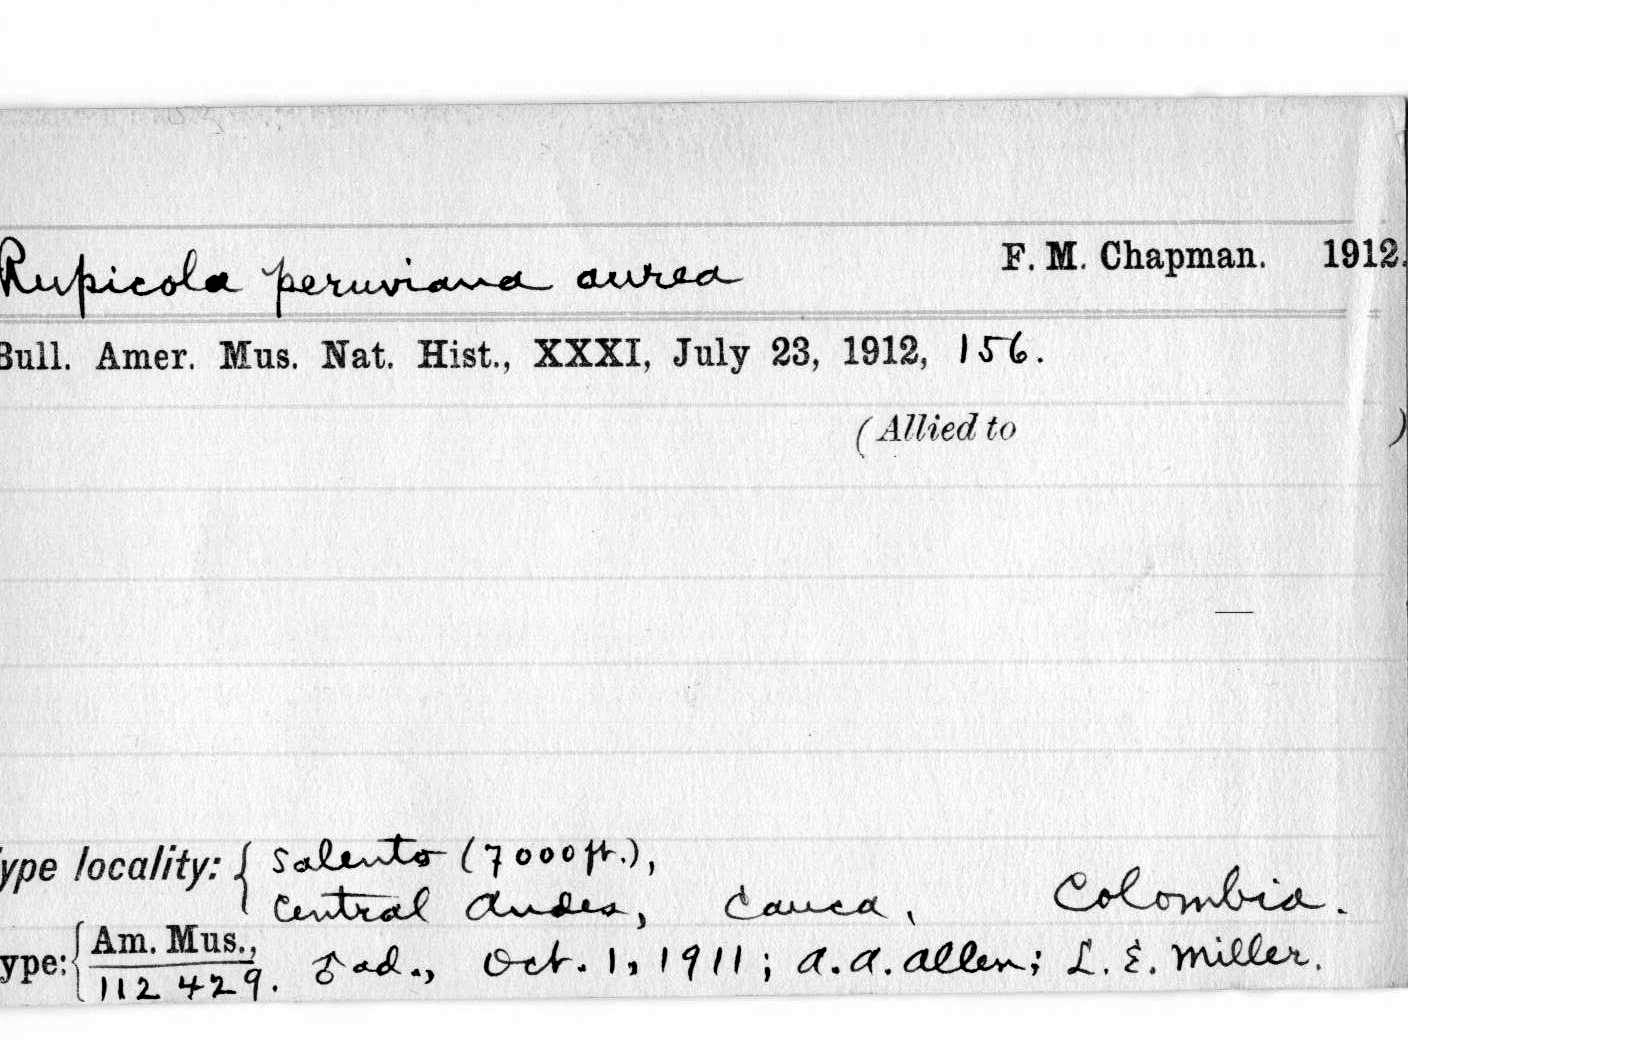 Rupicola peruviana aurea F. M. Chapman. 1912.
Bull. Amer. Mus. Nat. Hist., XXXI, July 23, 1912, 156.
(Allied to )
—
ype locality: { Salento (7000 ft.),
Central Andes, Cauca, Colombia.
ype: { Am. Mus., ♂ ad., Oct. 1, 1911; A. A. Allen; L. E. Miller.
112429.